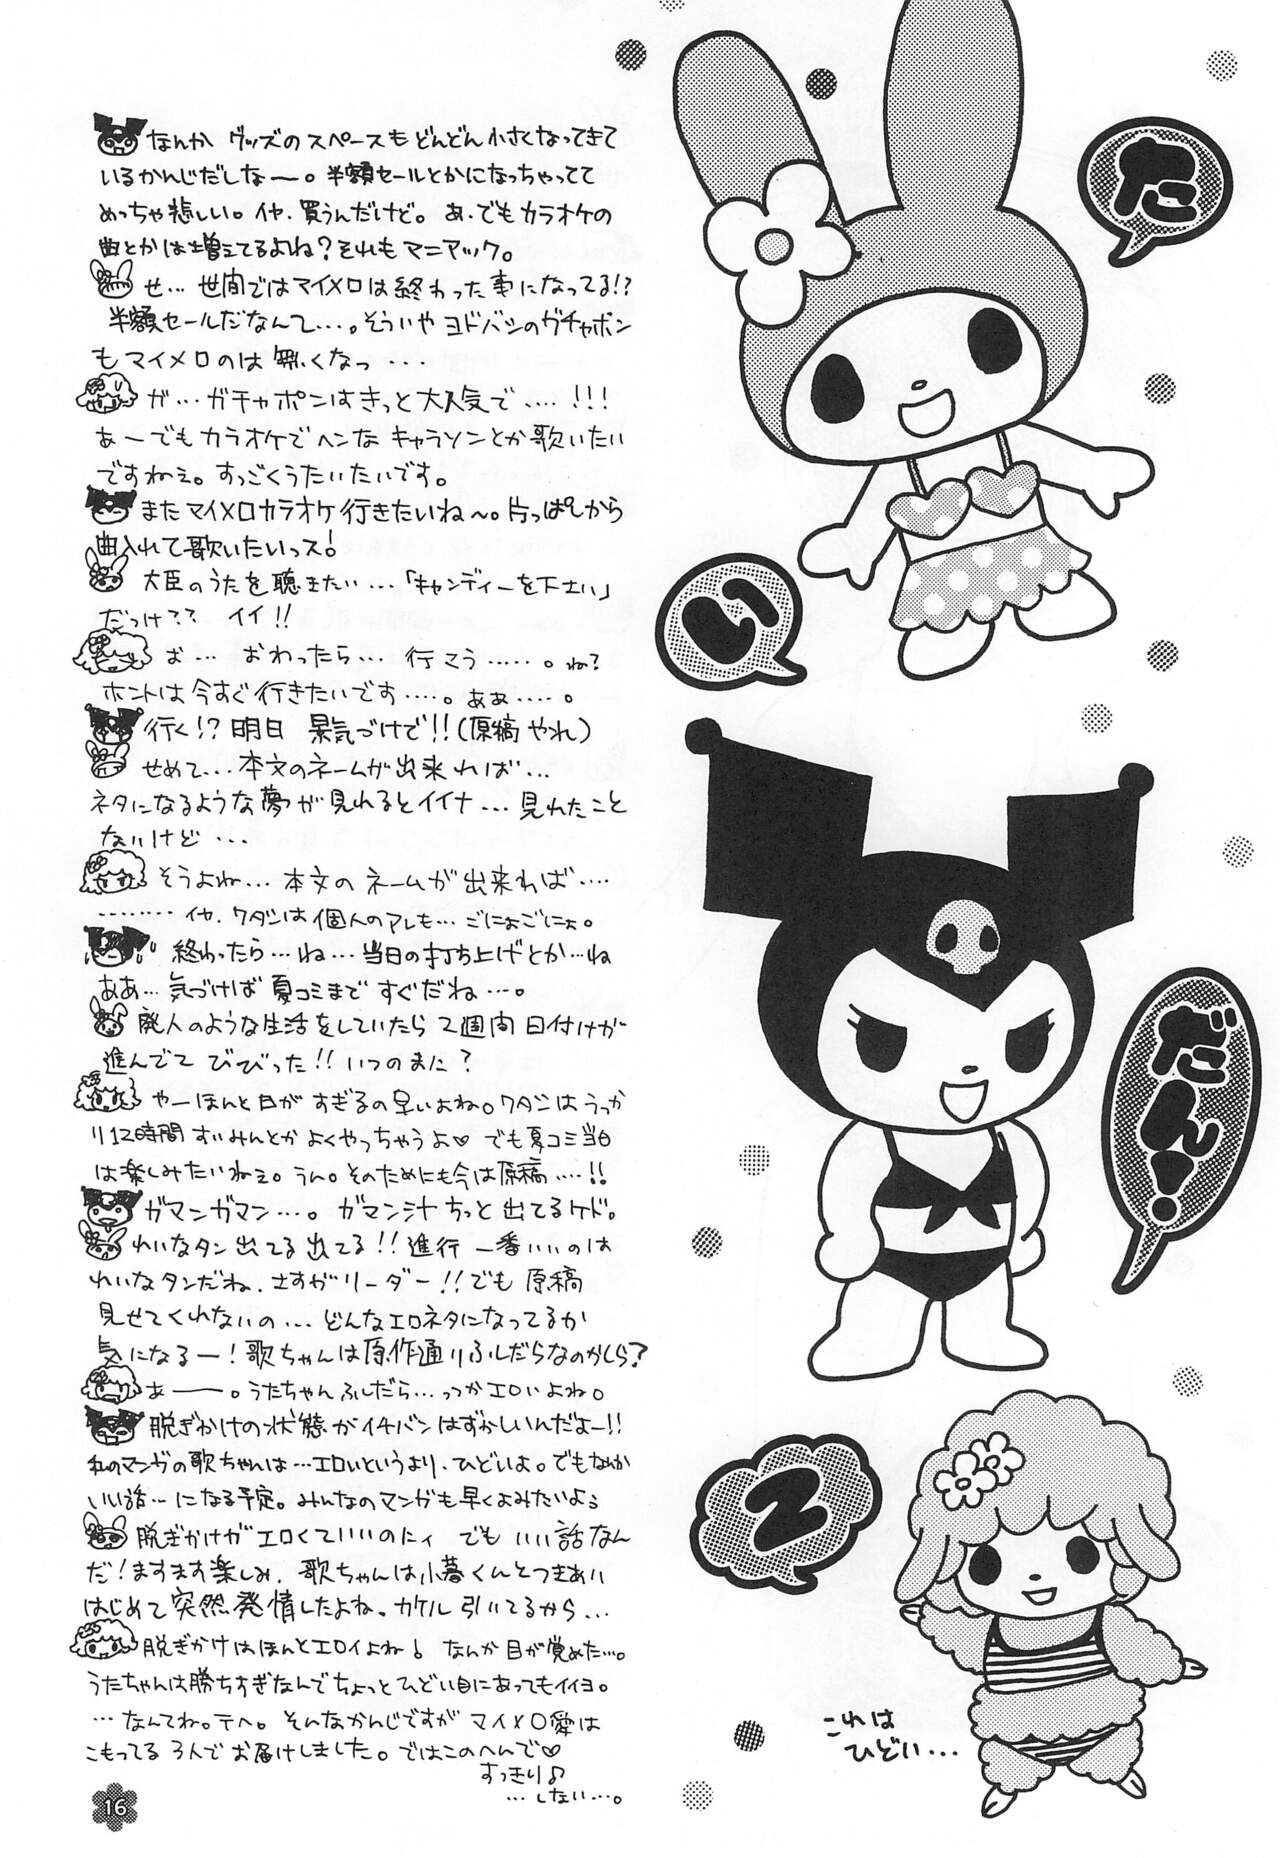 なんか グッズのスペースもどんどん小さくなってきて
いるかんじだしなー。半額セールとかになっちゃってて
めっちゃ悲しい。イヤ、買うんだけど。あ、でもカラオケの
曲とかは増えてるよね?それもマニアック。
せ… 世間ではマイメロは終わった事になってる!?
半額セールだなんて…。そういや ヨドバシのガチャポン
もマイメロのは 無くなっ…
が…ガチャポンはきっと大人気で….!!!
あーでもカラオケでヘンなキャラソンとか歌いたい
ですねぇ。すっごくうたいたいです。
またマイメロカラオケ行きたいね〜。片っぱしから
曲入れて歌いたいっス!
大臣のうたを聴きたい…「キャンディーを下さい」
だっけ?? イイ!!
お… おわったら… 行こう…..。ね?
ホントは今すぐ行きたいです…。ああ…。
行く!? 明日 景気づけで!!(原稿やれ)
せめて…本文のネームが出来れば…
ネタになるような夢が見れるとイイナ…見れたこと
ないけど…
そうよね…本文のネームが出来れば….
……イヤ、ワダシは個人のアレも…ごにょごにょ。
終わったら…ね…当日の打ち上げとか…ね
ああ…気づけば夏コミまですぐだね…。
廃人のような生活をしていたら2週間日付けが
進んでて びびった!! いつのまに?
やーほんと日がすぎるの早いよね。ワダシはうっか
り12時間すいみんとかよくやっちゃうよ♡ でも夏コミ当日
は楽しみたいねぇ。うん。そのためにも今は原稿….!!
ガマンガマン…。ガマン汁ちっと出てるケド。
れいなタン出てる出てる!!進行一番いいのは
れいなタンだね、さすがリーダー!!でも原稿
見せてくれないの…どんなエロネタになってるか
気になるー!歌ちゃんは原作通りふしだらなのかしら?
あーー。うたちゃんふしだら…っつかエロいよね。
脱ぎかけの状態がイチバンはずかしいんだよー!!
私のマンガの歌ちゃんは…エロいというより、ひどいよ。でもなんか
いい話…になる予定。みんなのマンガも早くよみたいよう
脱ぎかけがエロくていいのにィ でもいい話なん
だ!ますます楽しみ。歌ちゃんは小暮くんとつきあい
はじめて突然発情したよね。カケル引いてるから…
脱ぎかけはほんとエロイよね! なんか目が覚めた…。
うたちゃんは勝ちすぎなんでちょっとひどい目にあってもイイヨ。
…なんてね。テヘ。そんなかんじですが マイメロ愛は
こもってる3人でお届けしました。ではこのへんで♡
すっきり♪
…しない…。
16
た
い
だん!
2
これは
ひどい…